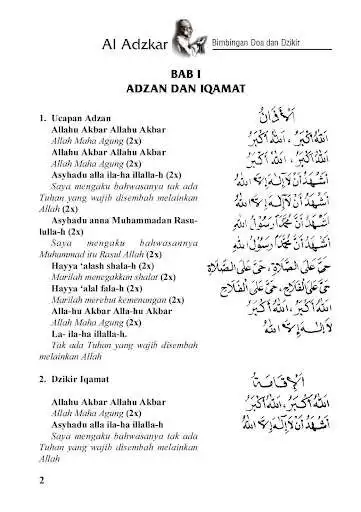 Al Adzkar
Bimbingan Doa dan Dzikir
BAB I
ADZAN DAN IQAMAT
1. Ucapan Adzan
Allahu Akbar Allahu Akbar
Allah Maha Agung (2x)
Allahu Akbar Allahu Akbar
Allah Maha Agung (2x)
Asyhadu alla ila-ha illalla-h (2x)
Saya mengaku bahwasanya tak ada
Tuhan yang wajib disembah melainkan
Allah (2x)
Asyhadu anna Muhammadan Rasu-
lulla-h (2x)
Saya mengaku bahwasannya
Muhummad itu Rasul Allah (2x)
Hayya ‘alash shala-h (2x)
Marilah menegakkan shalat (2x)
Hayya ‘alal fala-h (2x)
Marilah merebut kemenangan (2x)
Alla-hu Akbar Alla-hu Akbar
Allah Maha Agung (2x)
La- ila-ha illalla-h.
Tak ada Tuhan yang wajib disembah
melainkan Allah
اَلْأَذَانُ
اَللهُ اَكْبَرُ ، اَللهُ اَكْبَرُ
اَللهُ اَكْبَرُ ، اَللهُ اَكْبَرُ
اَشْهَدُ اَنْ لَا اِلٰهَ اِلَّا اللهُ
اَشْهَدُ اَنْ لَا اِلٰهَ اِلَّا اللهُ
اَشْهَدُ اَنَّ مُحَمَّدًا رَسُوْلُ اللهِ
اَشْهَدُ اَنَّ مُحَمَّدًا رَسُوْلُ اللهِ
حَيَّ عَلَى الصَّلَاةِ ، حَيَّ عَلَى الصَّلَاةِ
حَيَّ عَلَى الْفَلَاحِ ، حَيَّ عَلَى الْفَلَاحِ
اَللهُ اَكْبَرُ ، اَللهُ اَكْبَرُ
لَا اِلٰهَ اِلَّا اللهُ
2. Dzikir Iqamat
Allahu Akbar Allahu Akbar
Allah Maha Agung (2x)
Asyhadu alla ila-ha illalla-h
Saya mengaku bahwasanya tak ada
Tuhan yang wajib disembah melainkan
Allah
اَلْإِقَامَةُ
اَللهُ اَكْبَرُ ، اَللهُ اَكْبَرُ
اَشْهَدُ اَنْ لَا اِلٰهَ اِلَّا اللهُ
2